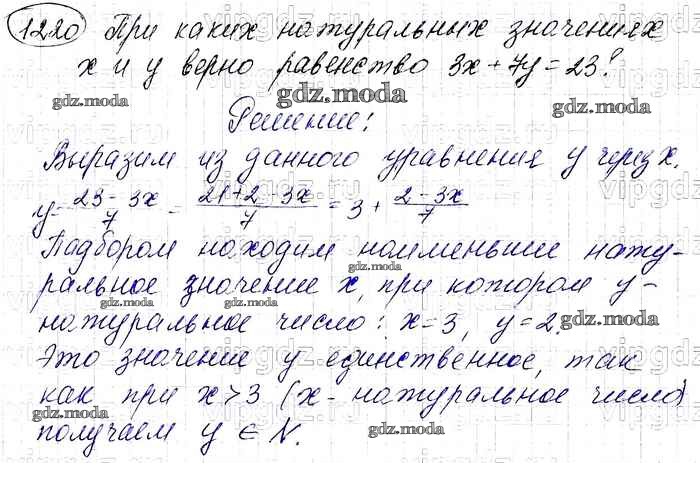 1220 При каких натуральных значениях
x и y верно равенство 3x + 7y = 23?
gdz.moda gdz.moda
Решение:
Выразим из данного уравнения y через x.
y = (23 - 3x)/7 = (21+2-3x)/7 = 3 + (2-3x)/7
Подбором находим наименьшее нату-
gdz.moda
ральное значение x, при котором y -
gdz.moda gdz.moda
натуральное число: x = 3, y = 2.
gdz.moda
Это значение y единственное, так
как при x > 3 (x - натуральное число)
gdz.moda
получаем y ∈ N.
gdz.moda